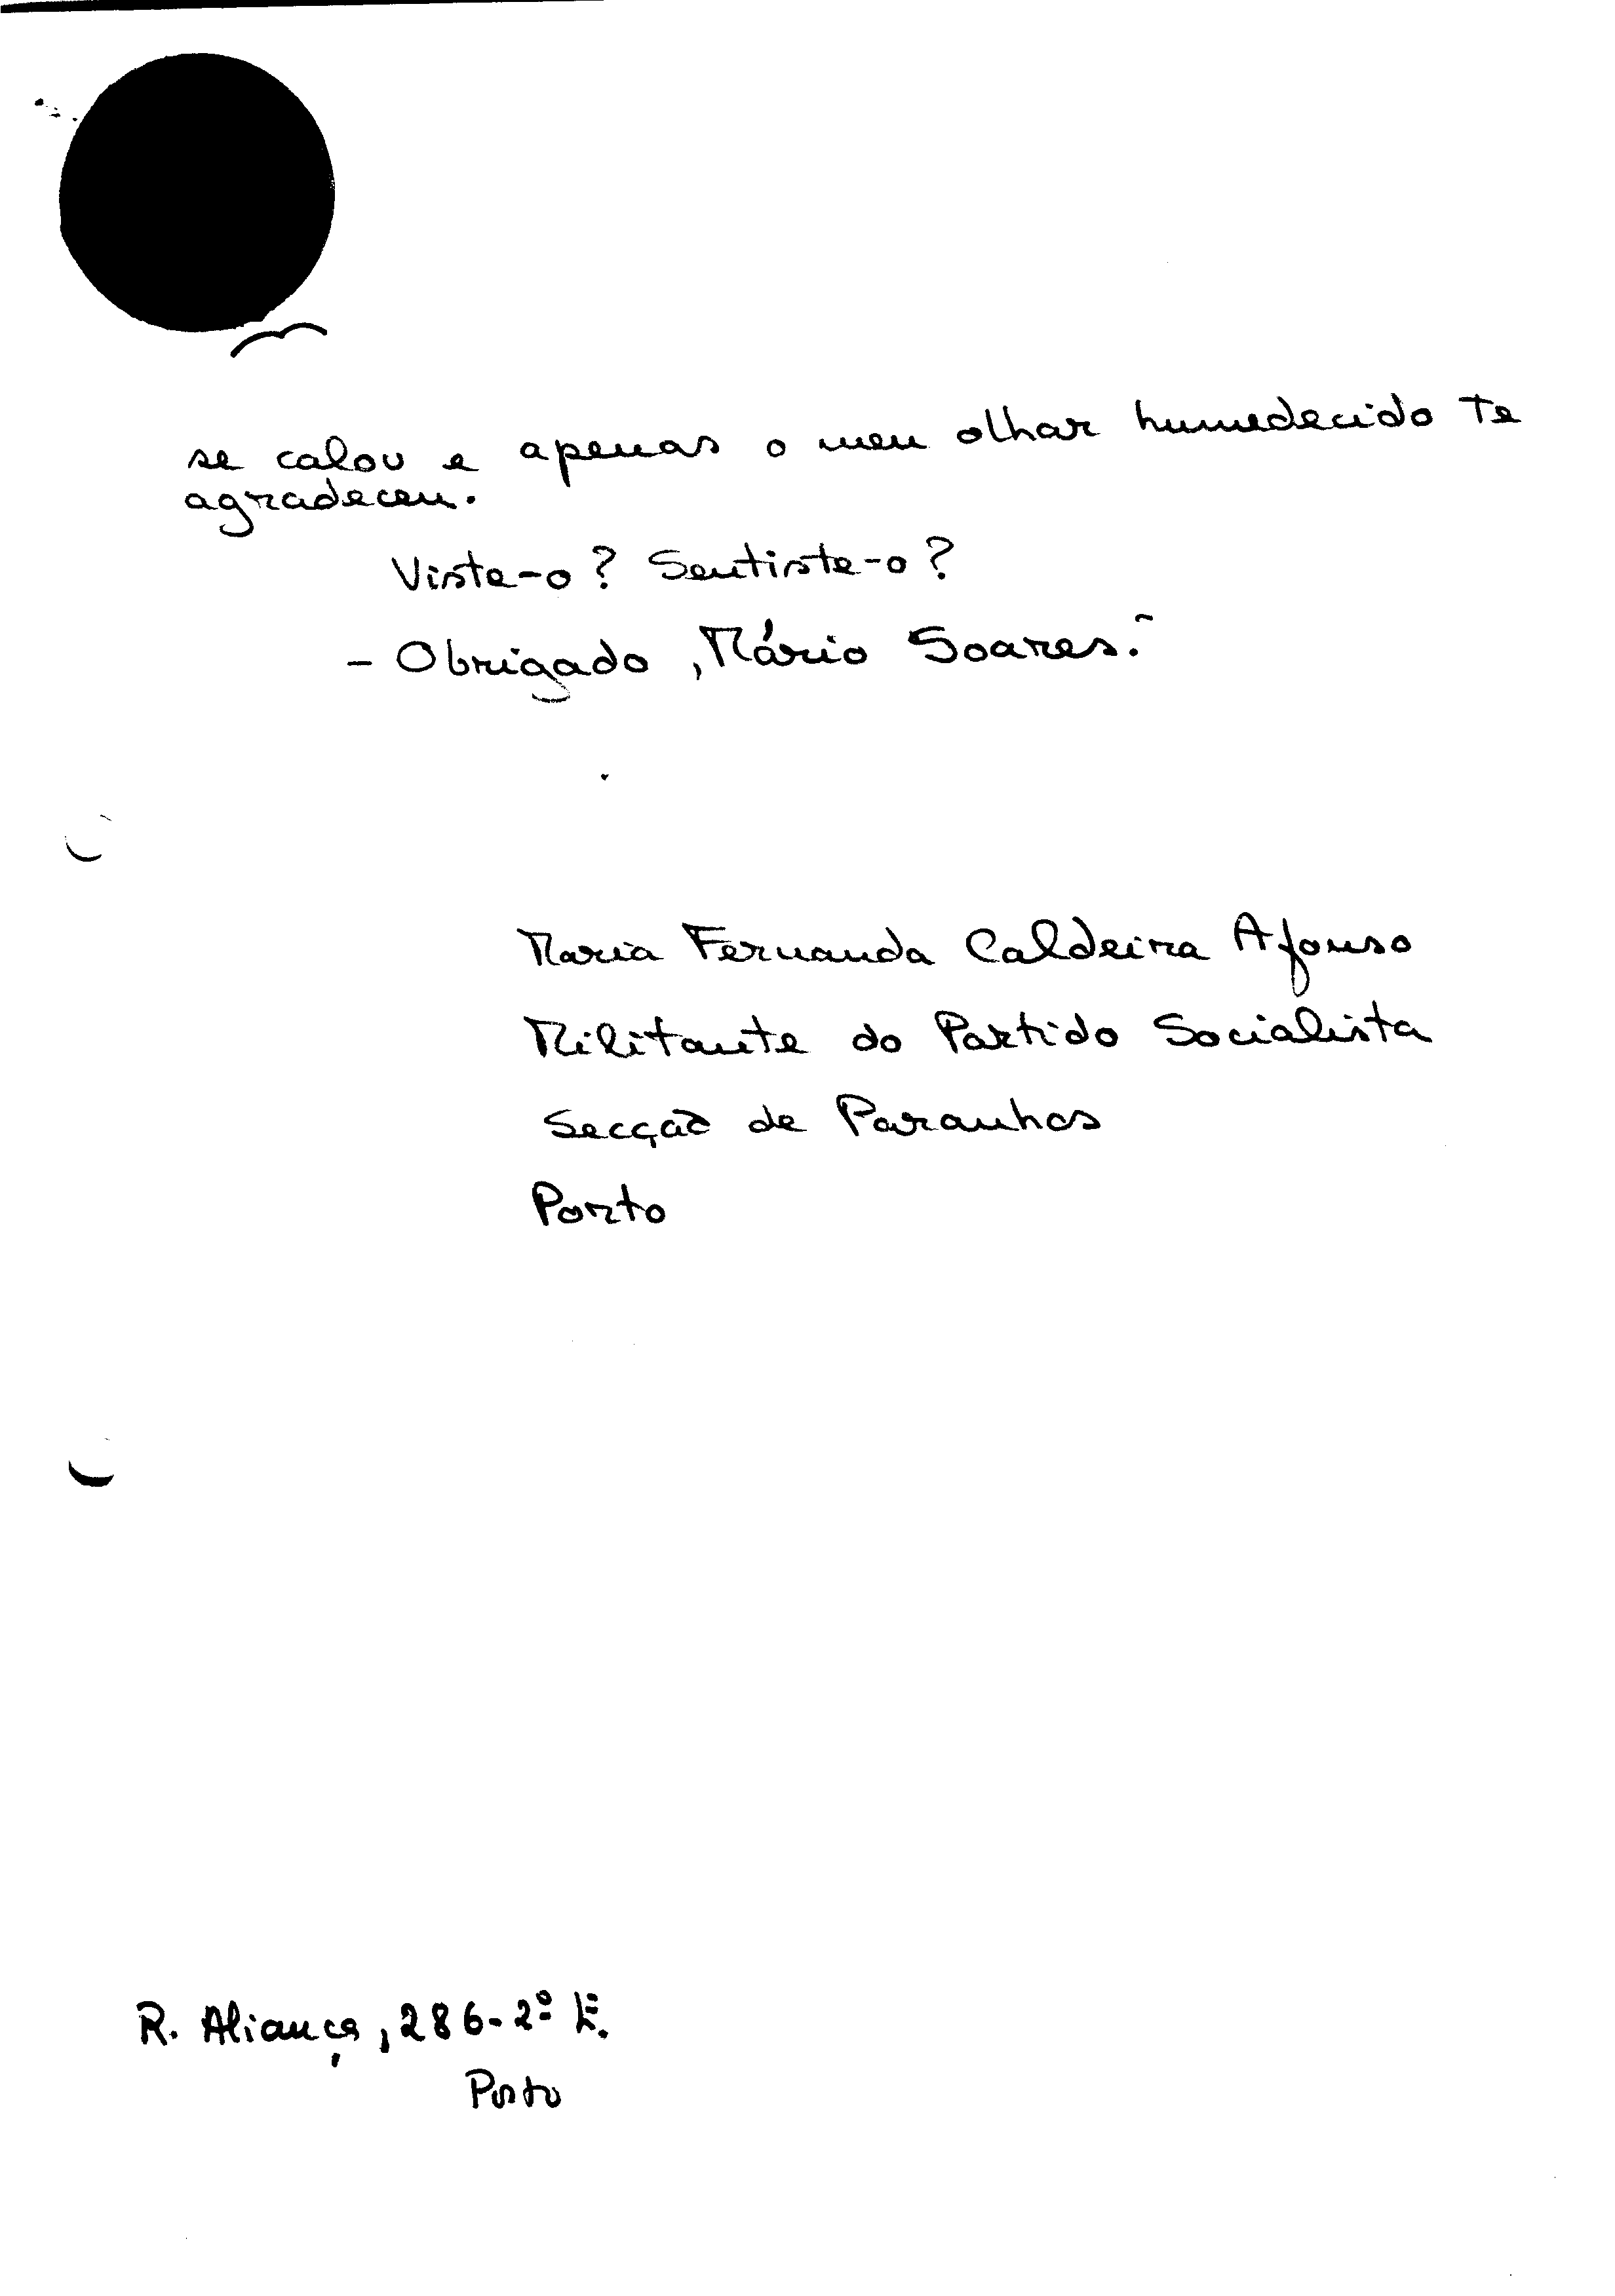 se calou e apenas o meu olhar humedecido te
agradeceu.
Viste-o? Sentiste-o?
- Obrigado, Mário Soares."
Maria Fernanda Caldeira Afonso
Militante do Partido Socialista
Secção de Paranhos
Porto
R. Aliança, 286-2º E.
Porto